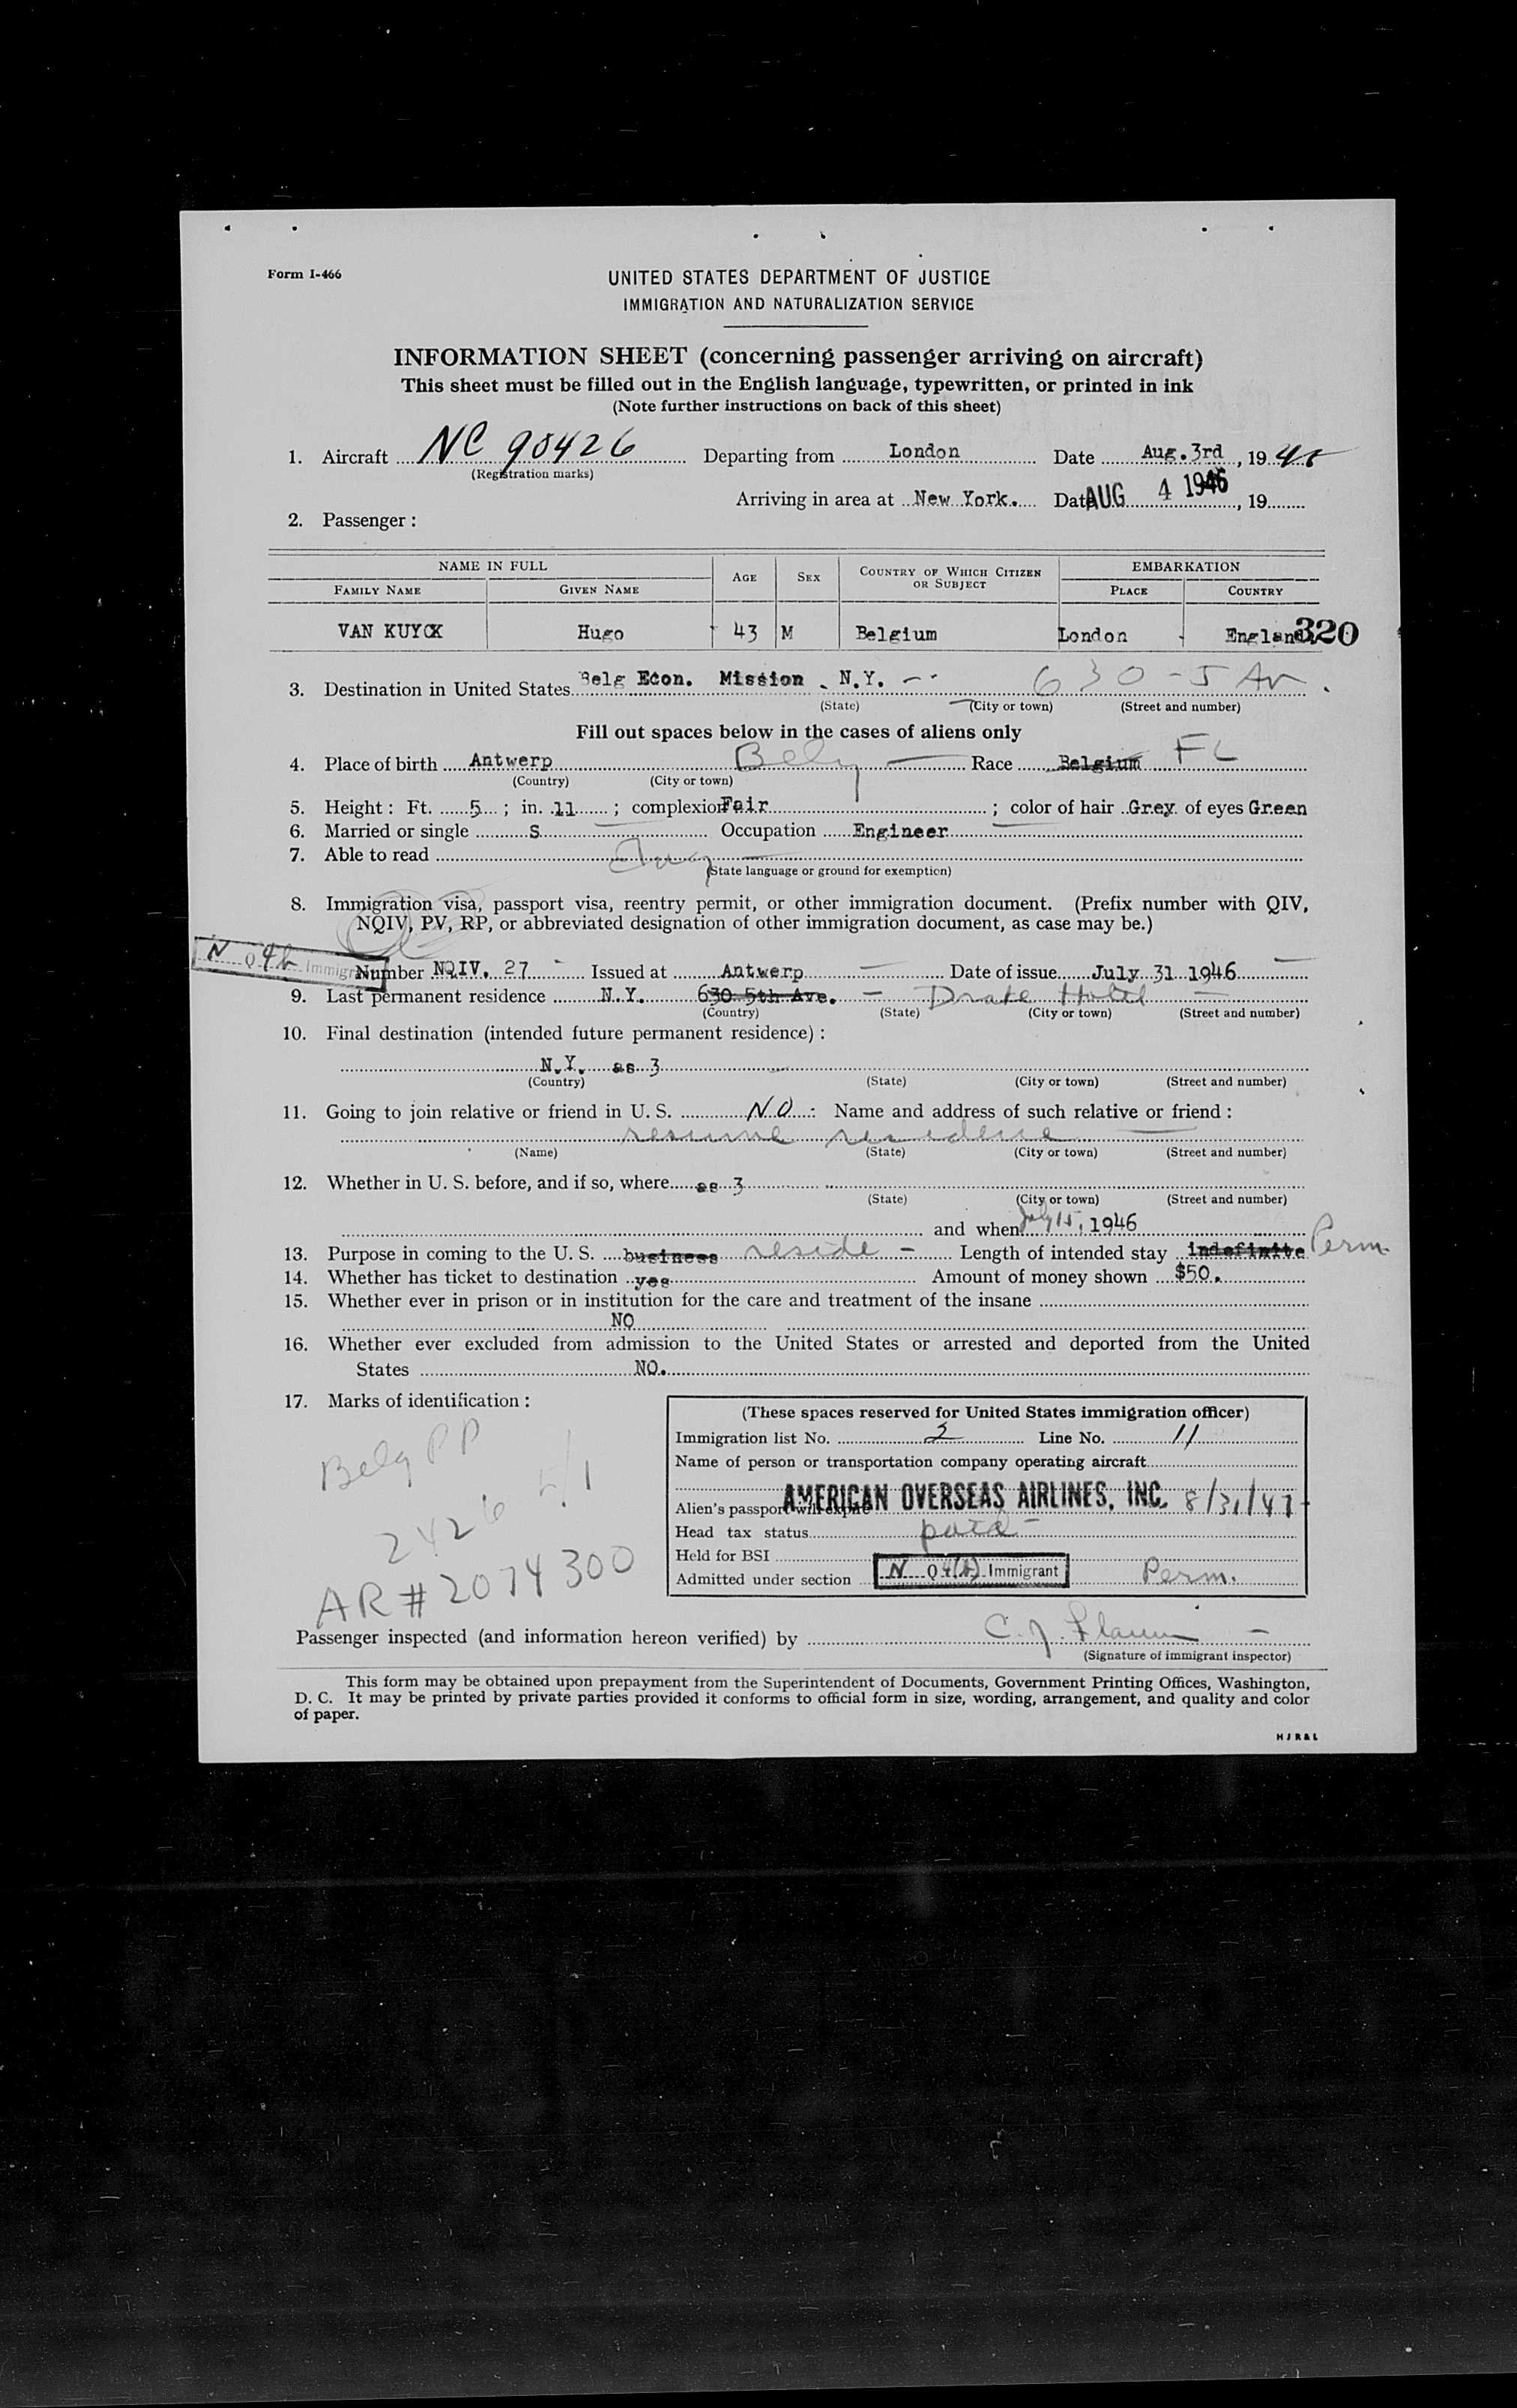 Form I-466
UNITED STATES DEPARTMENT OF JUSTICE
IMMIGRATION AND NATURALIZATION SERVICE
INFORMATION SHEET (concerning passenger arriving on aircraft)
This sheet must be filled out in the English language, typewritten, or printed in ink
(Note further instructions on back of this sheet)
1. Aircraft NC 90426 Departing from London Date Aug. 3rd, 1946
(Registration marks)
Arriving in area at New York. Date AUG 4 1946, 19
2. Passenger:
NAME IN FULL AGE SEX COUNTRY OF WHICH CITIZEN OR SUBJECT EMBARKATION
FAMILY NAME GIVEN NAME PLACE COUNTRY
VAN KUYCK Hugo 43 M Belgium London England 320
3. Destination in United States Belg Econ. Mission N.Y. 630 - 5 Av
(State) (City or town) (Street and number)
Fill out spaces below in the cases of aliens only
4. Place of birth Antwerp Belg Race Belgium FL
(Country) (City or town)
5. Height: Ft. 5; in. 11; complexion Fair; color of hair Grey of eyes Green
6. Married or single S Occupation Engineer
7. Able to read Eng
(State language or ground for exemption)
8. Immigration visa, passport visa, reentry permit, or other immigration document. (Prefix number with QIV,
NQIV, PV, RP, or abbreviated designation of other immigration document, as case may be.)
N Q 4b Immigrant
Number NQIV. 27 Issued at Antwerp Date of issue July 31 1946
9. Last permanent residence N.Y. 630 5th Ave. Drake Hotel
(Country) (State) (City or town) (Street and number)
10. Final destination (intended future permanent residence):
N.Y. as 3
(Country) (State) (City or town) (Street and number)
11. Going to join relative or friend in U. S. NO: Name and address of such relative or friend:
resume residence
(Name) (State) (City or town) (Street and number)
12. Whether in U. S. before, and if so, where as 3
(State) (City or town) (Street and number)
and when July 15, 1946
13. Purpose in coming to the U. S. business reside - Length of intended stay indefinite Perm
14. Whether has ticket to destination yes Amount of money shown $50.
15. Whether ever in prison or in institution for the care and treatment of the insane
NO
16. Whether ever excluded from admission to the United States or arrested and deported from the United
States NO.
17. Marks of identification:
Belg PP
2426
AR # 2074300
(These spaces reserved for United States immigration officer)
Immigration list No. 2 Line No. 11
Name of person or transportation company operating aircraft
AMERICAN OVERSEAS AIRLINES, INC.
Alien's passport will expire 8/31/47
Head tax status paid
Held for BSI
Admitted under section N Q 4(b) Immigrant Perm.
Passenger inspected (and information hereon verified) by C. J.
(Signature of immigrant inspector)
This form may be obtained upon prepayment from the Superintendent of Documents, Government Printing Offices, Washington,
D. C. It may be printed by private parties provided it conforms to official form in size, wording, arrangement, and quality and color
of paper.
HJR&L